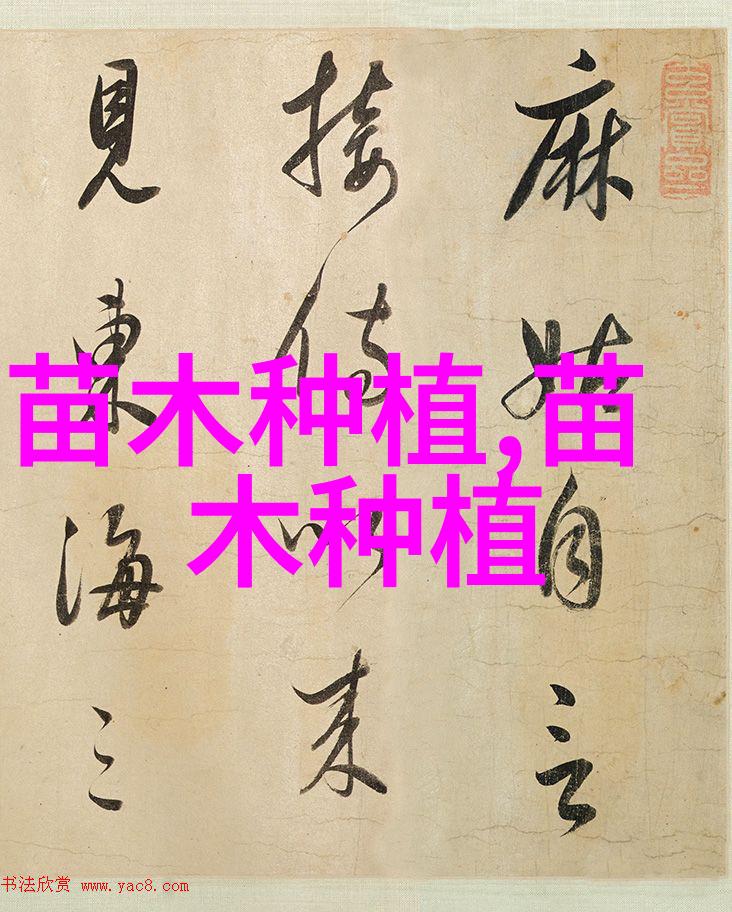 麻姑自言
接侍以来
見東海三
苗木种植,苗
木种植
书法欣赏 www.yac8.com